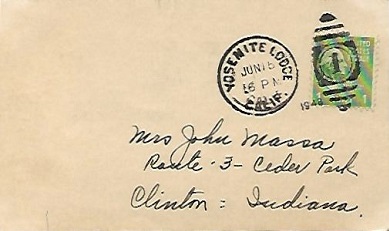 YOSEMITE LODGE
JUN 15
6 PM
CALIF.
1
194
1
Mrs John Massa
Route - 3 - Ceder Park
Clinton = Indiana.